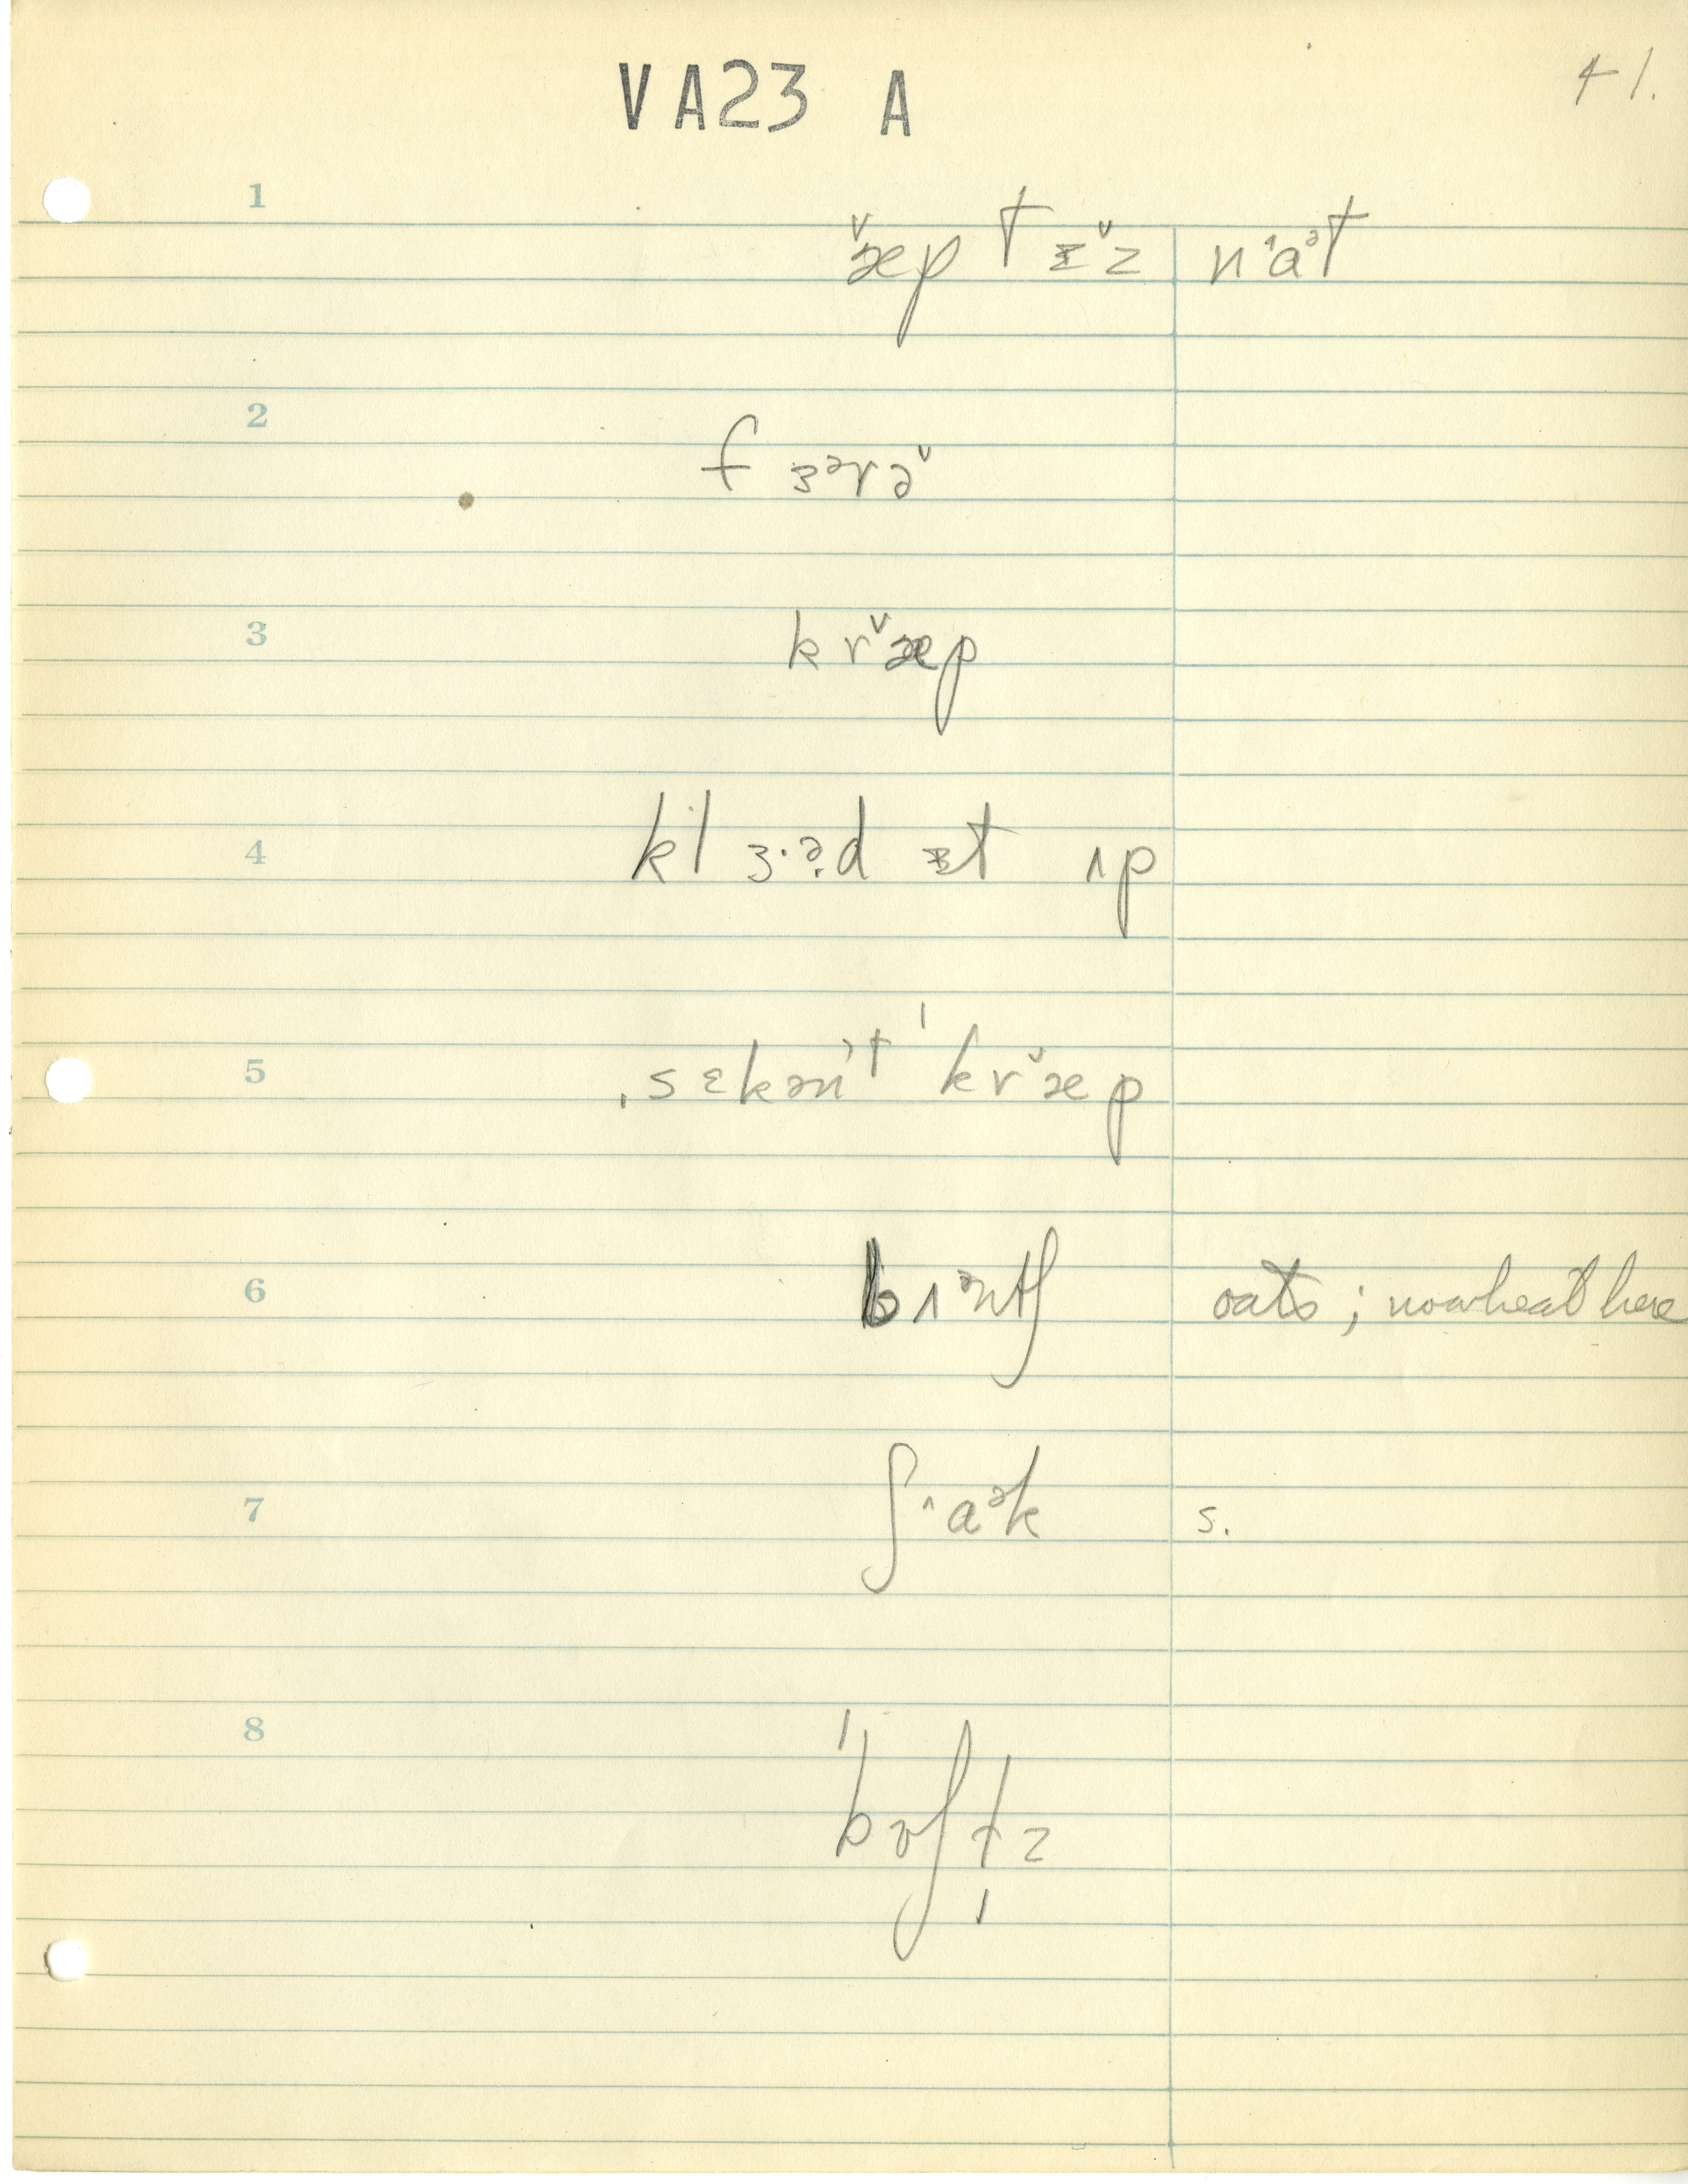 VA23 A
41.
1
æ̌p tɪ̌z nᶺaᵊt
2
f ɜᵊrə̌
3
k r æ̌p
4
kl ɜ·ə̣d ɪt ʌp
5
ˌsɛkən't ˈkræ̌p
6
bʌᵊntʃ oats; no wheat here
7
ʃᶺaᵊk s.
8
ˈbʊʃl̩z